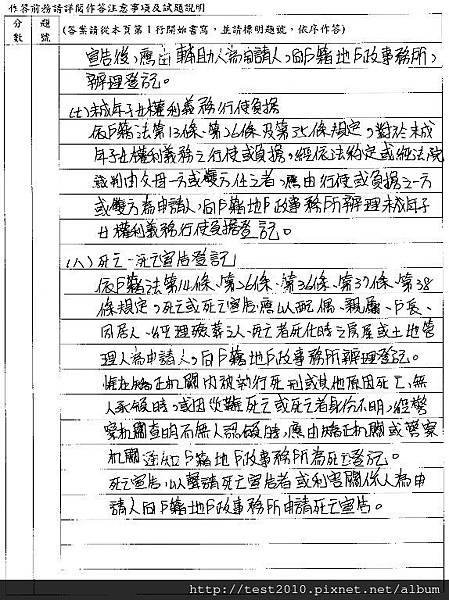 作答前務請詳閱作答注意事項及試題說明
分數
題號
(答案請從本頁第1行開始書寫，並請標明題號，依序作答)
宣告後，應由輔助人為申請人，向戶籍地戶政事務所，
辦理登記。
(七)未成年子女權利義務行使負擔
依戶籍法第13條、第26條及第35條規定，對於未成
年子女權利義務之行使或負擔，經依法約定或經法院
裁判由父母一方或雙方任之者，應由行使或負擔之一方
或雙方為申請人，向戶籍地戶政事務所辦理未成年子
女權利義務行使負擔登記。
(八)死亡、死亡宣告登記
依戶籍法第14條、第26條、第36條、第37條、第38
條規定，死亡或死亡宣告應以配偶、親屬、戶長、
同居人、經理殮葬之人、死亡者死亡時之房屋或土地管
理人為申請人，向戶籍地戶政事務所辦理登記。
惟在矯正機關內被執行死刑或其他原因死亡，無
人承領時，或因災難死亡或死亡者身份不明，經警
察機關查明而無人認領時，應由矯正機關或警察
機關通知戶籍地戶政事務所為死亡登記。
死亡宣告，以聲請死亡宣告者或利害關係人為申
請人向戶籍地戶政事務所申請死亡宣告。
http://test2010.pixnet.net/album